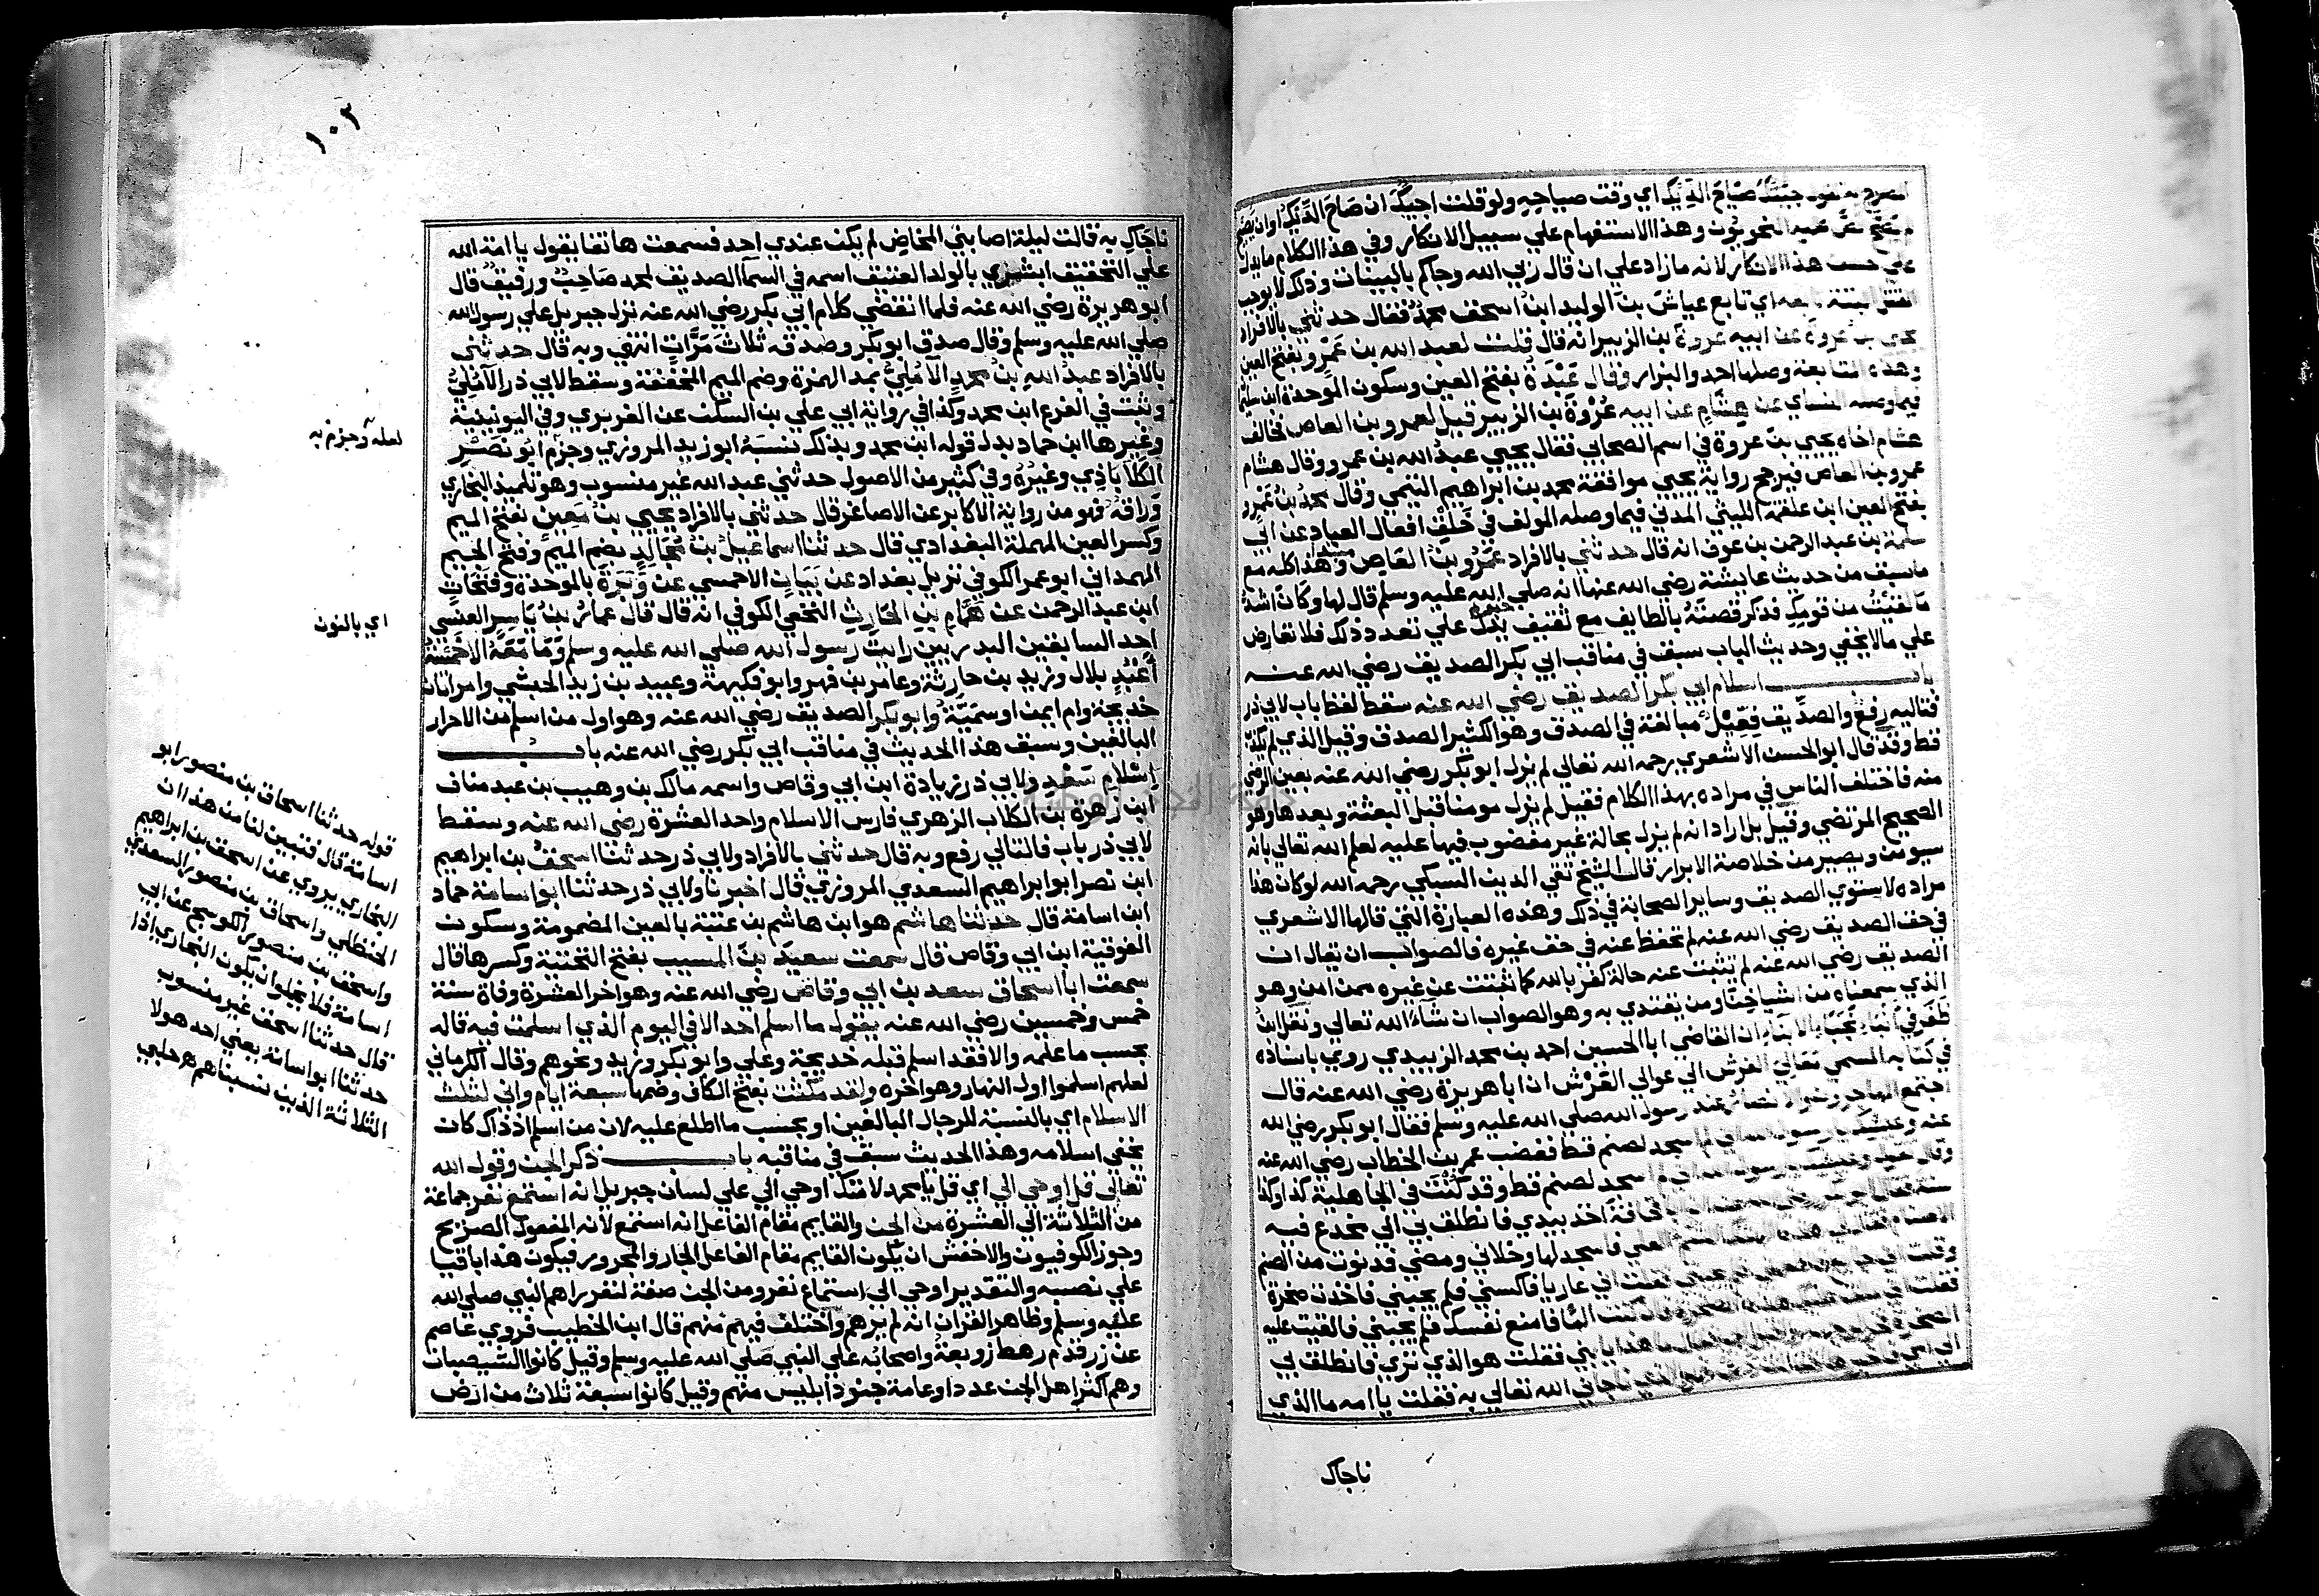 جئتك صياح الديك اي وقت صياحه ولو قلت اجيك ان صاح الديك او ان يصيح
عليه النحويون وهذا الاستفهام علي سبيل الانكار وفي هذا الكلام ما يدل
علي حسن هذا الانكار لانه ما زاد علي ان قال ربي الله وجاكم بالبينات وذلك لا يوجب
القتل البتة تابعه اي تابع عياش بن الوليد ابن اسحق محمد فقال حدثني بالافراد
يحيي بن عروة عن ابيه عروة بن الزبير انه قال قلت لعبد الله بن عمرو بفتح العين
وهذه المتابعة وصلها احمد والبزار وقال عبدة بفتح العين وسكون الموحدة ابن سليمان
فيما وصله النساي عن هشام عن ابيه عروة بن الزبير قيل لعمرو بن العاص فخالف
هشام اخاه يحيي بن عروة في اسم الصحابي فقال يحيي عبد الله بن عمرو وقال هشام
عمرو بن العاص فيرجح رواية يحيي موافقة محمد بن ابراهيم التيمي وقال محمد بن عمرو
بفتح العين ابن علقمة الليثي المدني فيما وصله المولف في خلق افعال العباد عن ابي
سلمة بن عبد الرحمن بن عوف انه قال حدثني بالافراد عمرو بن العاص وهذا كله مع
ما سبق من حديث عايشة رضي الله عنها انه صلي الله عليه وسلم قال لها وكان اشد
ما لقيت من قومك فذكر قصته بالطايف مع ثقيف يدل علي تعدد ذلك فلا تعارض
علي ما لا يخفي وحديث الباب سبق في مناقب ابي بكر الصديق رضي الله عنه
باب اسلام ابي بكر الصديق رضي الله عنه سقط لفظ باب لابي ذر
فتاليه رفع والصديق فعيل مبالغة في الصدق وهو الكثير الصدق وقيل الذي لم يكذب
قط وقد قال ابو الحسن الاشعري رحمه الله تعالي لم يزل ابو بكر رضي الله عنه بعين الرضي
منه فاختلف الناس في مراده بهذا الكلام فقيل لم يزل مومنا قبل البعثة وبعدها وهو
الصحيح المرتضي وقيل بل اراد انه لم يزل بحالة غير مغضوب فيها عليه لعلم الله تعالي بانه
سيومن ويصير من خلاصة الابرار قال الشيخ تقي الدين السبكي رحمه الله لو كان هذا
مراده لاستوي الصديق وساير الصحابة في ذلك وهذه العبارة التي قالها الاشعري
في حق الصديق رضي الله عنه لم تحفظ عنه في حق غيره فالصواب ان يقال ان
الصديق رضي الله عنه لم يثبت عنه حالة كفر بالله كما ثبتت عن غيره ممن امن وهو
الذي سمعناه من اشياخنا ومن يقتدي به وهو الصواب ان شاء الله تعالي ونقل ابن
ظفر في انباء نجباء الابناء ان القاضي ابا الحسين احمد بن محمد الزبيدي روي باسناده
في كتابه المسمي معالي الفرش الي عوالي العرش ان ابا هريرة رضي الله عنه قال
اجتمع المهاجرون والانصار عند رسول الله صلي الله عليه وسلم فقال ابو بكر رضي الله
عنه وعيشك يا رسول الله اني لم اسجد لصنم قط فغضب عمر بن الخطاب رضي الله عنه
وقال تقول وعيشك يا رسول الله اني لم اسجد لصنم قط وقد كنت في الجاهلية كذا وكذا
سنة فقال ابو بكر قحافة اخذ بيدي فانطلق بي الي مخدع فيه
الاصنام فقال لي هذه العلي فاسجد لها وخلاني ومضي فدنوت من الصنم
وقلت اني فلم يجبني فقلت اني عار يا فاكسني فلم يجبني فاخذت صخرة
فقلت كنت الها فامنع نفسك فلم يجبني فالقيت عليه
الصخرة ما هذا يا بني فقلت هو الذي تري فانطلق بي
الي امي ناجاني الله تعالي به فقلت يا امه ما الذي
ناجاك
١٠٣
ناجاك به قالت ليلة اصابني المخاض لم يكن عندي احد فسمعت هاتفا يقول يا امة الله
علي التحقيق ابشري بالولد العتيق اسمه في السما الصديق لمحمد صاحب ورفيق قال
ابو هريرة رضي الله عنه فلما انقضي كلام ابي بكر رضي الله عنه نزل جبريل علي رسول الله
صلي الله عليه وسلم وقال صدق ابو بكر وصدقه ثلاث مرات انتهي وبه قال حدثني
بالافراد عبد الله بن محمد الاملي بمد الهمزة وضم الميم المخففة وسقط لابي ذر الاملي
وثبت في الفرع ابن محمد وكذا في رواية ابي علي بن السكن عن الفربري وفي اليونينية
وغيرها ابن حماد بدل قوله ابن محمد وبذلك نسبه ابو زيد المروزي وجزم ابو نصر
الكلاباذي وغيره وفي كثير من الاصول حدثني عبد الله غير منسوب وهو تلميذ البخاري
وراقه فهو من رواية الاكابر عن الاصاغر قال حدثني بالافراد يحيي بن معين بفتح الميم
وكسر العين المهملة البغدادي قال حدثنا اسماعيل بن مجالد بضم الميم وفتح الجيم
الهمداني ابو عمر الكوفي نزيل بغداد عن بيان الاحمسي عن وبرة بالموحدة وفتحات
ابن عبد الرحمن عن همام بن الحارث النخعي الكوفي انه قال قال عمار بن ياسر العنسي
احد السابقين البدريين رايت رسول الله صلي الله عليه وسلم وما معه الا خمسة
اعبد بلال وزيد بن حارثة وعامر بن فهر وابو فكيهة وعبيد بن زيد الحبشي وامراتان
خديجة وام ايمن او سمية وابو بكر الصديق رضي الله عنه وهو اول من اسلم من الاحرار
البالغين وسبق هذا الحديث في مناقب ابي بكر رضي الله عنه باب
اسلام سعد ولابي ذر زيادة ابن ابي وقاص واسمه مالك بن وهيب بن عبد مناف
ابن زهرة بن الكلاب الزهري فارس الاسلام واحد العشرة رضي الله عنه وسقط
لابي ذر باب فالتالي رفع وبه قال حدثني بالافراد ولابي ذر حدثنا اسحق بن ابراهيم
ابن نصر ابو ابراهيم السعدي المروزي قال اخبرنا ولابي ذر حدثنا ابو اسامة حماد
ابن اسامة قال حدثنا هاشم هو ابن هاشم بن عتبة بالعين المضمومة وسكون
الفوقية ابن ابي وقاص قال سمعت سعيد بن المسيب بفتح التحتية وكسرها قال
سمعت ابا اسحاق سعد بن ابي وقاص رضي الله عنه وهو اخر العشرة وفاة سنة
خمس وخمسين رضي الله عنه يقول ما اسلم احد الا في اليوم الذي اسلمت فيه قاله
بحسب ما علمه والا فقد اسلم قبله خديجة وعلي وابو بكر وزيد ونحوهم وقال الكرماني
لعلهم اسلموا اول النهار وهو اخره ولقد مكثت بفتح الكاف وضمها سبعة ايام واني لثلث
الاسلام اي بالنسبة للرجال البالغين او بحسب ما اطلع عليه لان من اسلم اذ ذاك كان
يخفي اسلامه وهذا الحديث سبق في مناقبه باب ذكر الجن وقول الله
تعالي قل اوحي الي اي قل يا محمد لامتك اوحي الي علي لسان جبريل انه استمع نفر جماعة
من الثلاثة الي العشرة من الجن والقايم مقام الفاعل انه استمع لانه المفعول الصريح
وجوز الكوفيون والاخفش ان يكون القايم مقام الفاعل الجار والمجرور فيكون هذا باقيا
علي نصبه والتقدير اوحي الي استماع نفر ومن الجن صفة لنفر راهم النبي صلي الله
عليه وسلم وظاهر القران انه لم يرهم واختلف فيهم منهم قال ابن الخطيب فروي عاصم
عن زر قدم رهط زوبعة واصحابه علي النبي صلي الله عليه وسلم وقيل كانوا الشيصبان
وهم اكثر اهل الجن عددا وعامة جنود ابليس منهم وقيل كانوا سبعة ثلاث من ارض
لعله وجزم به
اي بالنون
قوله حدثنا اسحاق بن منصور ابو
اسامة قال فتبين لنا من هذا ان
البخاري يروي عن اسحق بن ابراهيم
الحنظلي واسحاق بن منصور السعدي
واسحق بن منصور الكوسج عن ابي
اسامة فلا يخلو ان يكون البخاري اذا
قال حدثنا اسحق غير منسوب
حدثنا ابو اسامة يعني احد هولا
الثلاثة الذين نسبناهم حلبي